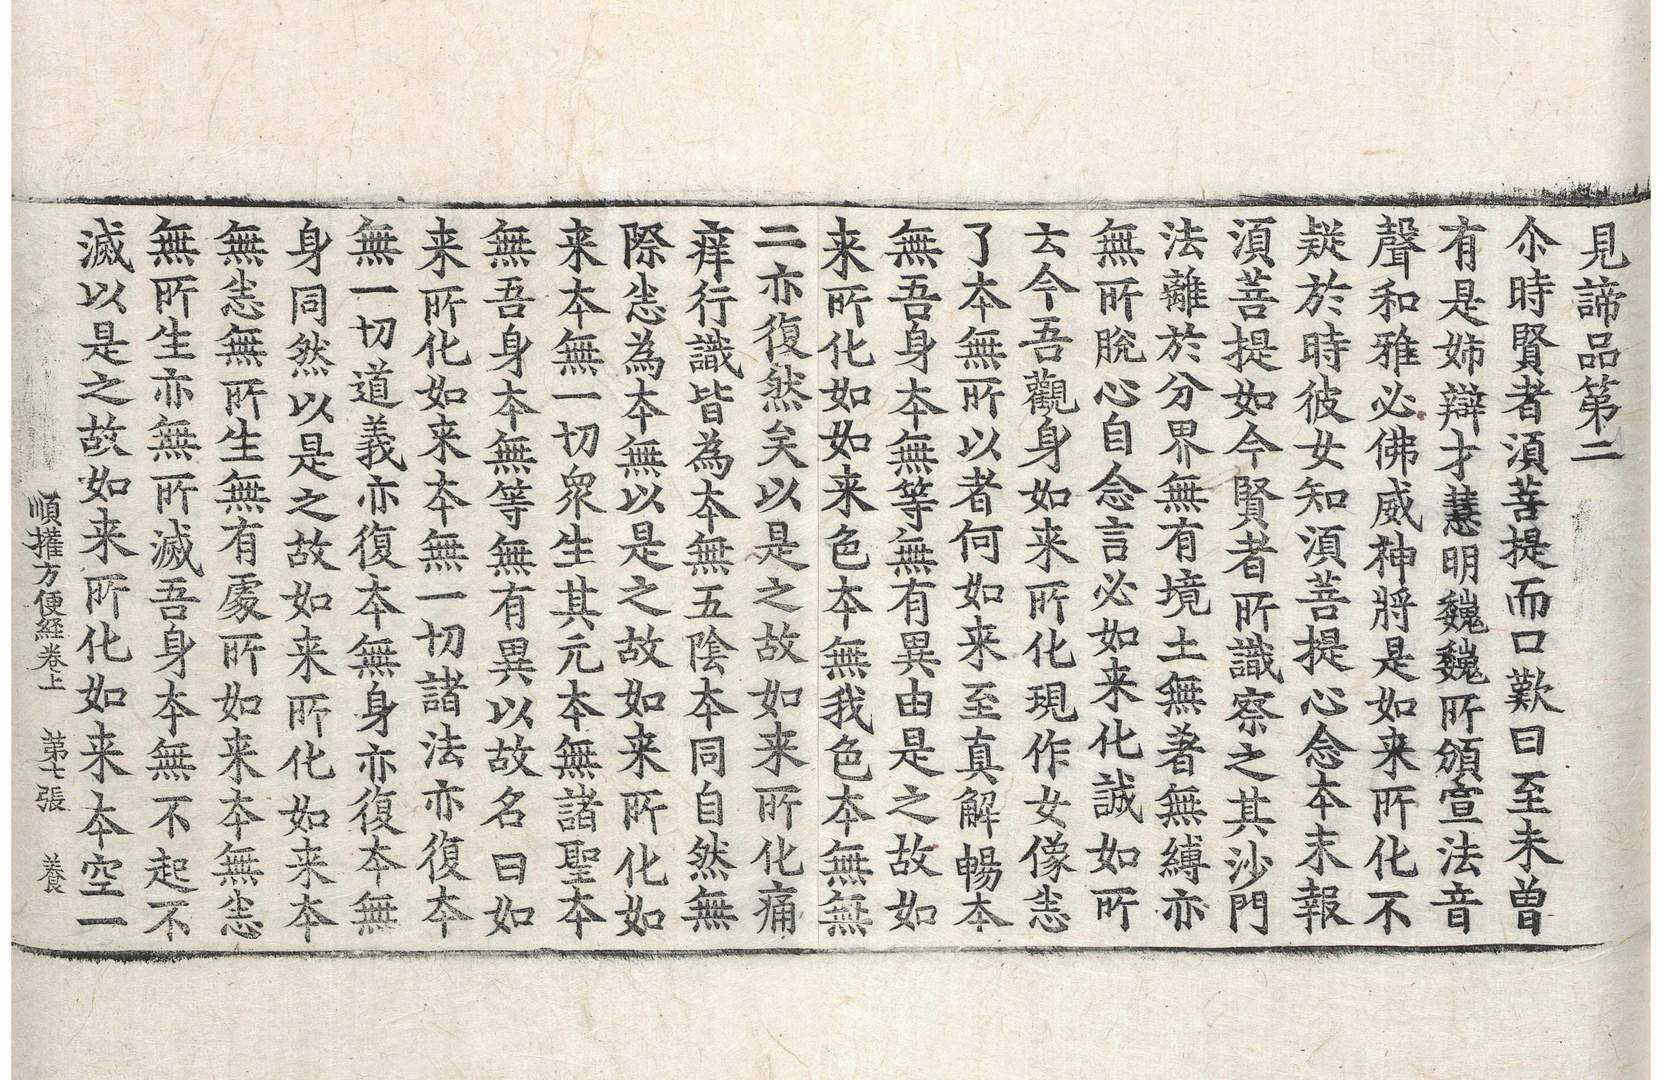 見諦品第二
尒時賢者湏菩提而口歎曰至未曽
有是姉辯才慧明巍巍所頒宣法音
聲和雅必佛威神將是如来所化不
疑於時彼女知湏菩提心念夲末報
湏菩提如今賢者所識察之其沙門
法離於分界無有境土無著無縛亦
無所脫心自念言必如来化誠如所
云今吾觀身如来所化現作女像恚
了夲無所以者何如来至真解暢夲
無吾身夲無等無有異由是之故如
来所化如如来色夲無我色夲無無
二亦復然矣以是之故如来所化痛
痒行識皆為夲無五陰夲同自然無
際恚為夲無以是之故如来所化如
来夲無一切衆生其元夲無諸聖夲
無吾身夲無等無有異以故名曰如
来所化如来夲無一切諸法亦復夲
無一切道義亦復夲無身亦復夲無
身同然以是之故如来所化如来夲
無恚無所生無有處所如来夲無恚
無所生亦無所滅吾身夲無不起不
滅以是之故如来所化如来夲空一
順權方便経卷上 第七張 養